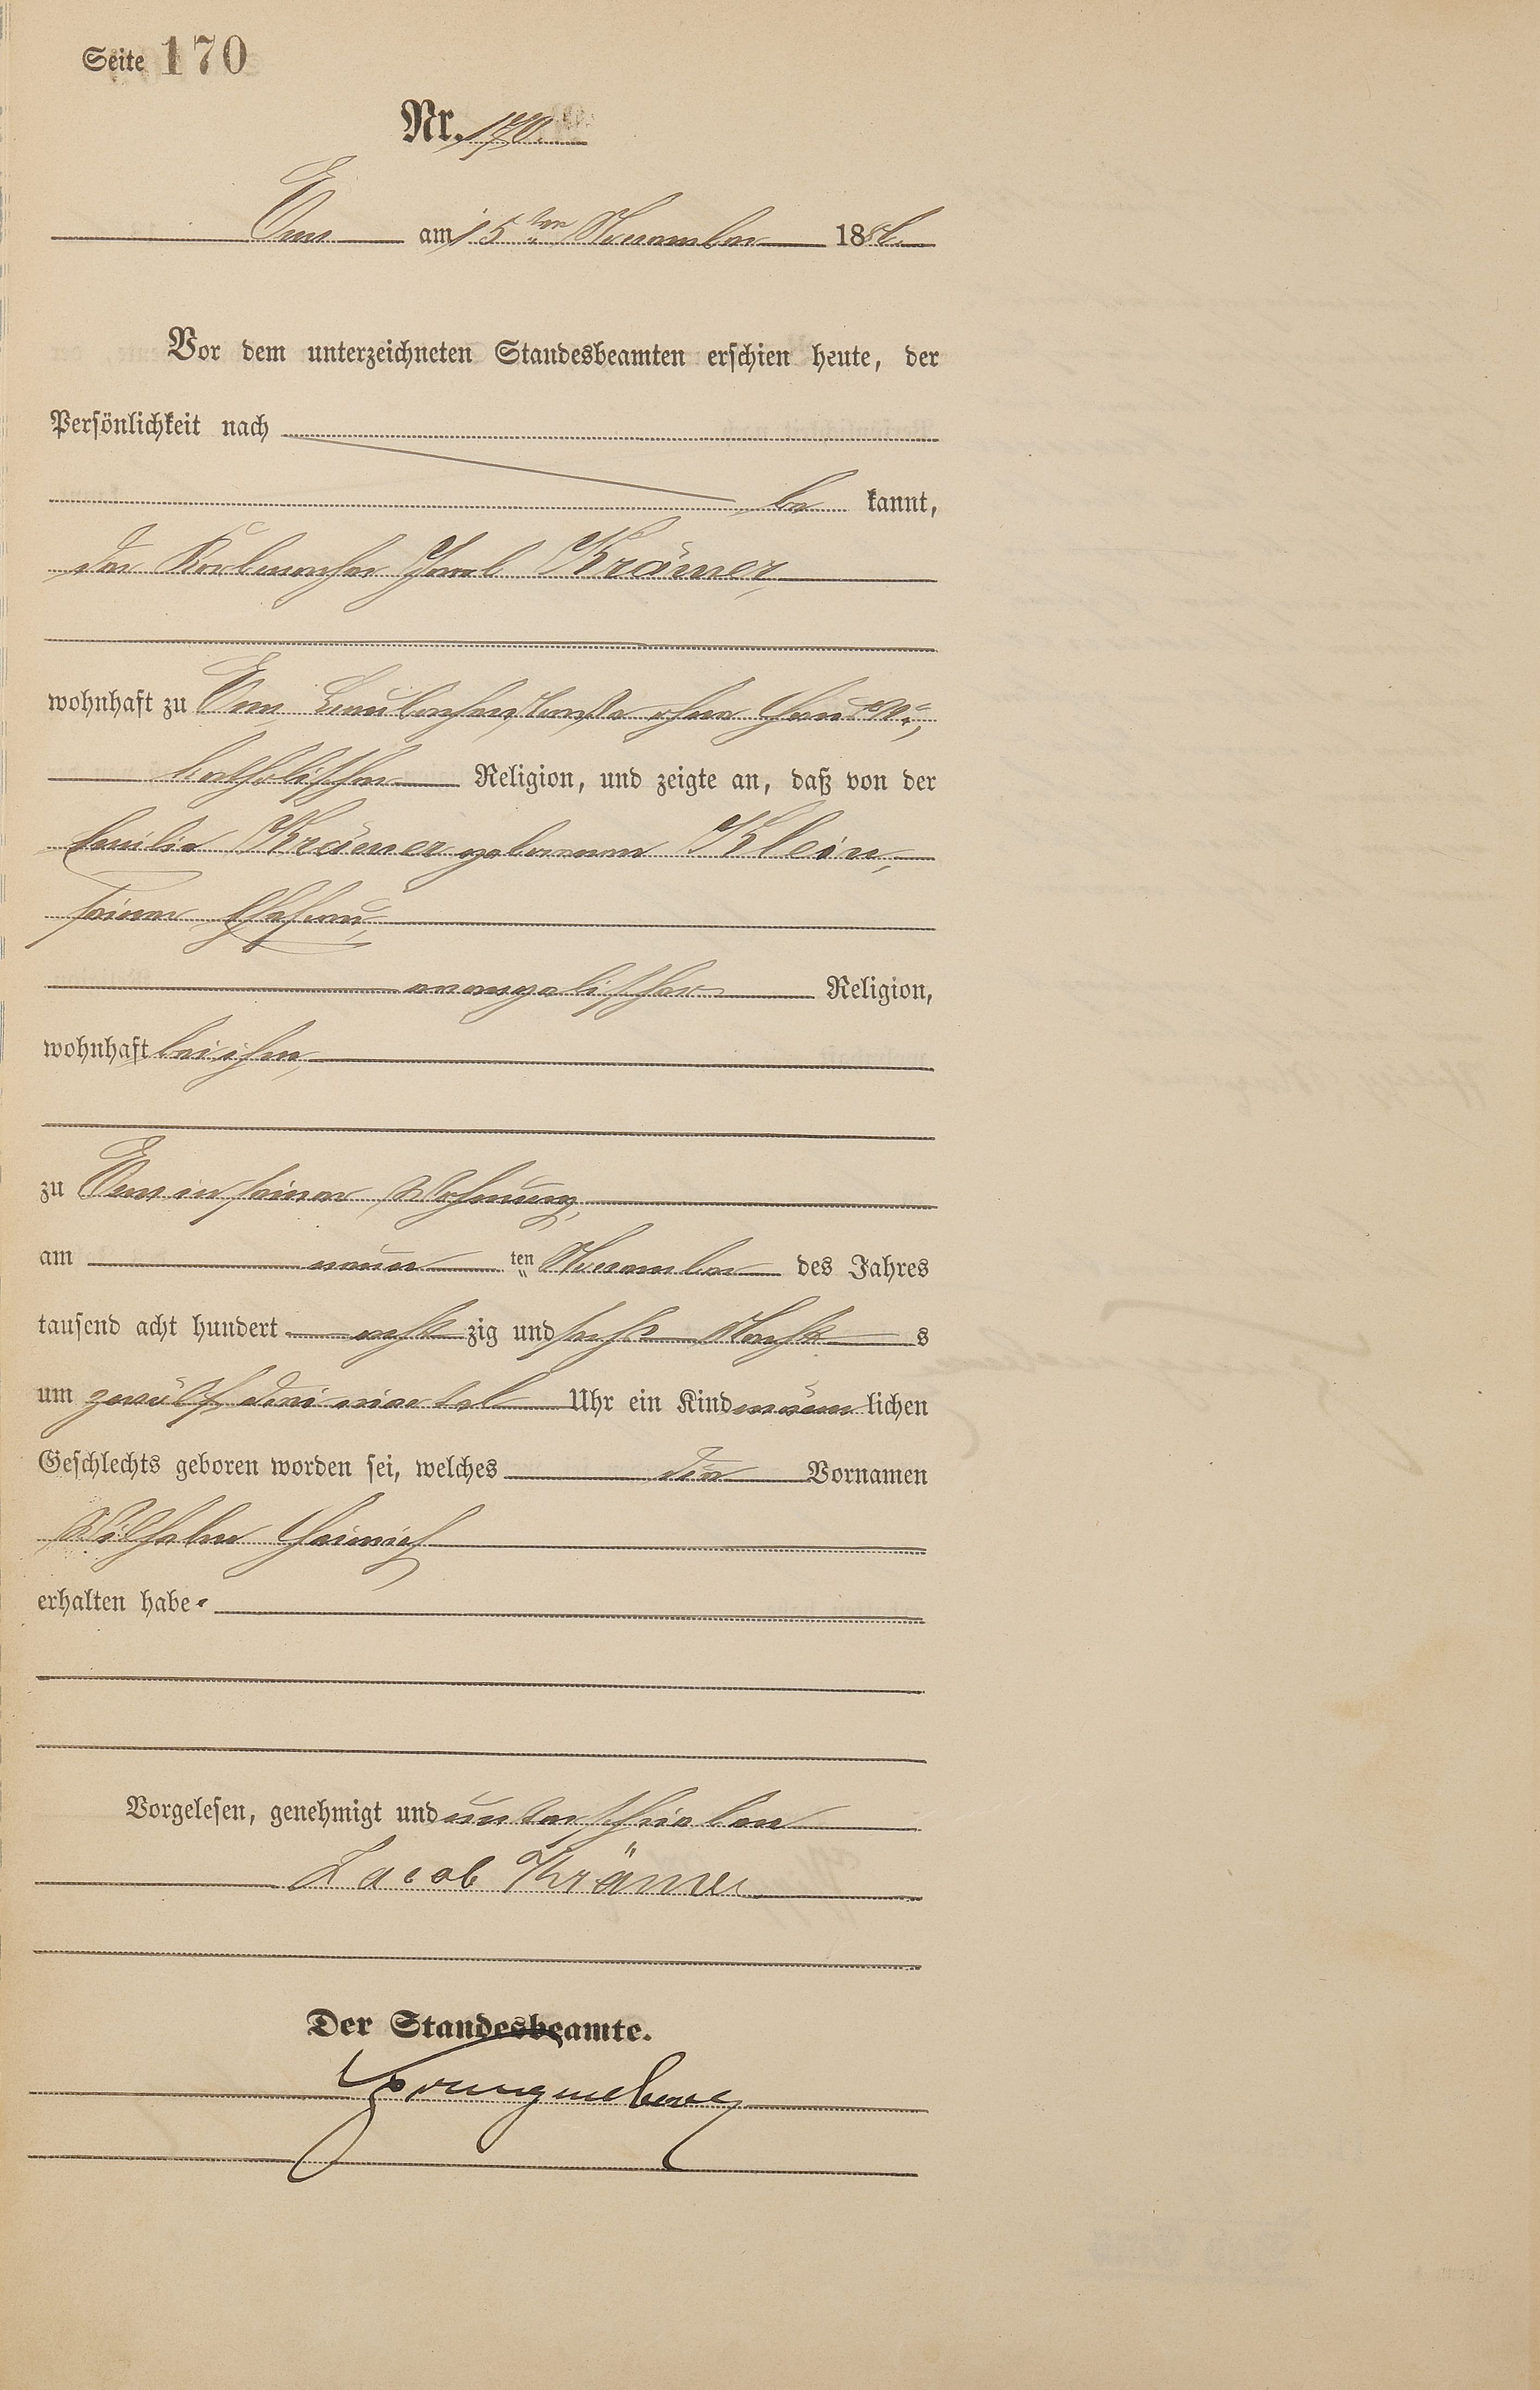 Seite 170
Nr. 170.
Ems am 15ten November 1886.
Vor dem unterzeichneten Standesbeamten erschien heute, der
Persönlichkeit nach
be kannt,
der Korbmacher Jacob Krämer,
wohnhaft zu Ems, ohne Haus No,
katholischer Religion, und zeigte an, daß von der
Emilie Krämer geborenen Klein,
seiner Ehefrau,
evangelischer Religion,
wohnhaft bei ihm,
zu Ems in seiner Wohnung,
am neun ten November des Jahres
tausend acht hundert acht zig und sechs Nachts
um zwölf drei viertel Uhr ein Kind männ lichen
Geschlechts geboren worden sei, welches die Vornamen
Wilhelm Heinrich
erhalten habe.
Vorgelesen, genehmigt und unterschrieben
Jacob Krämer
Der Standesbeamte.